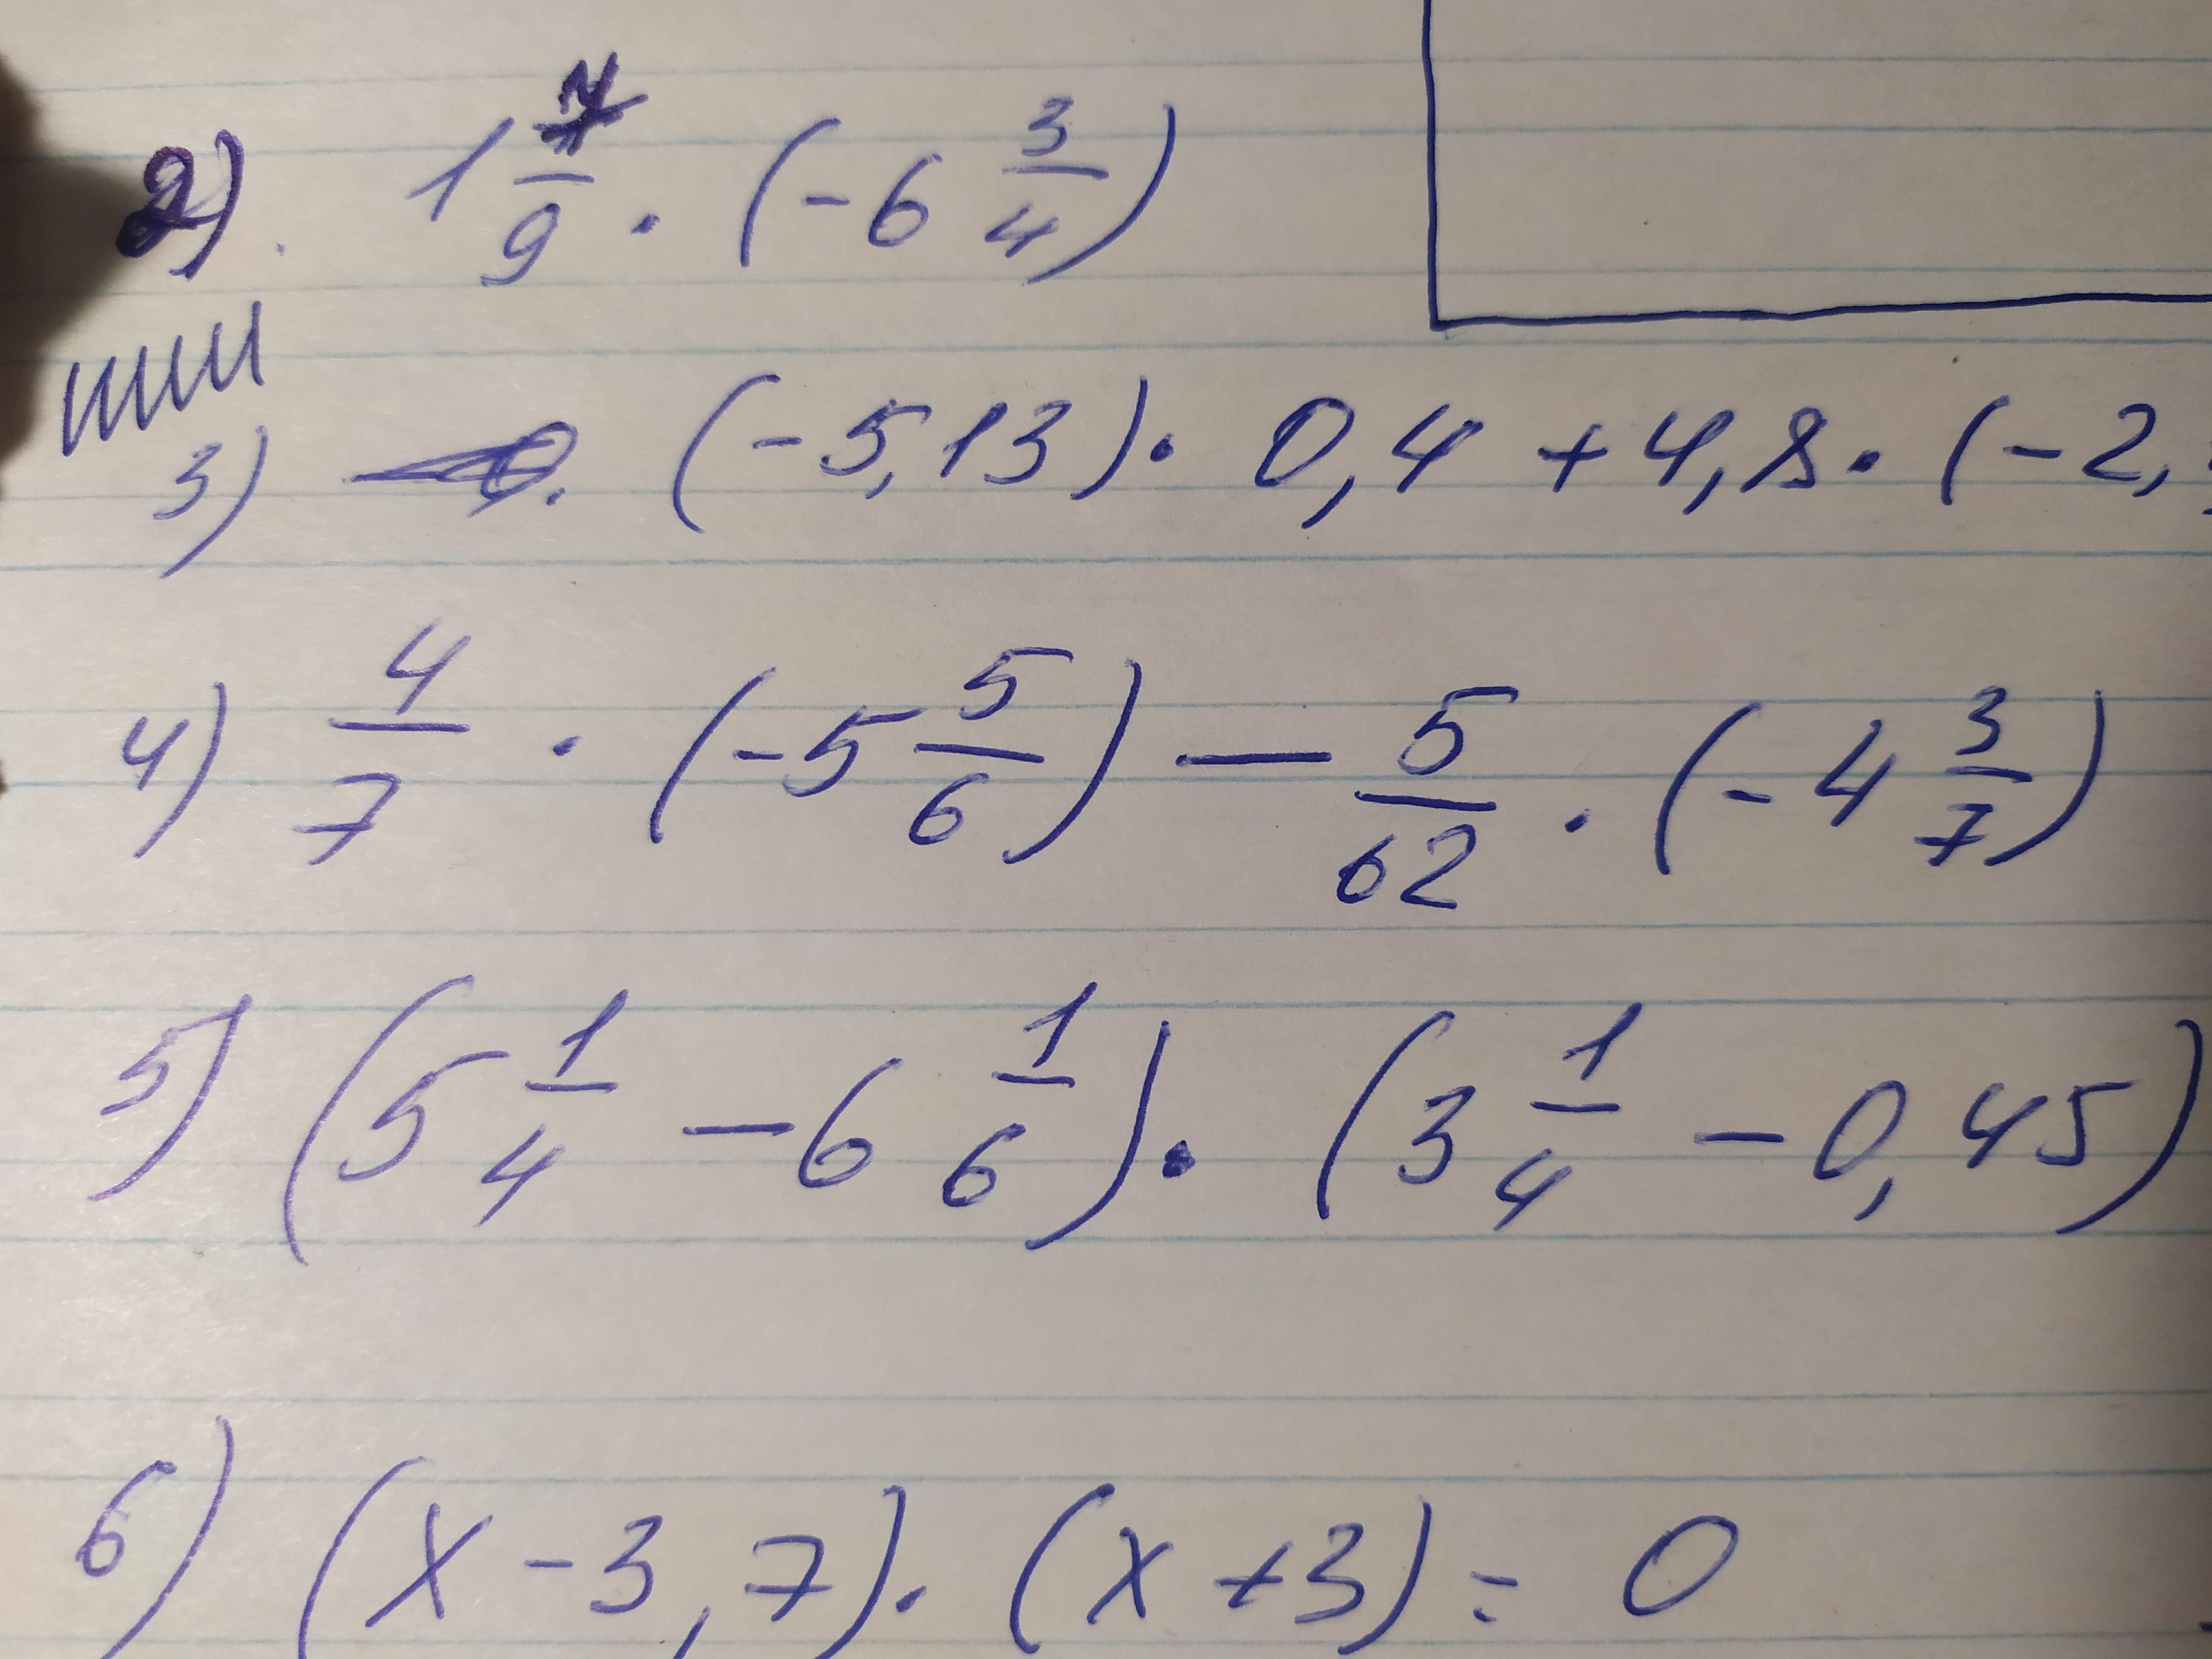 2). 1 7/9 · (-6 3/4)
3) (-5,13) · 0,4 + 4,8 · (-2,
4) 4/7 · (-5 5/6) - 5/62 · (-4 3/7)
5) (5 1/4 - 6 1/6) · (3 1/4 - 0,45)
6) (x - 3,7) · (x + 3) = 0